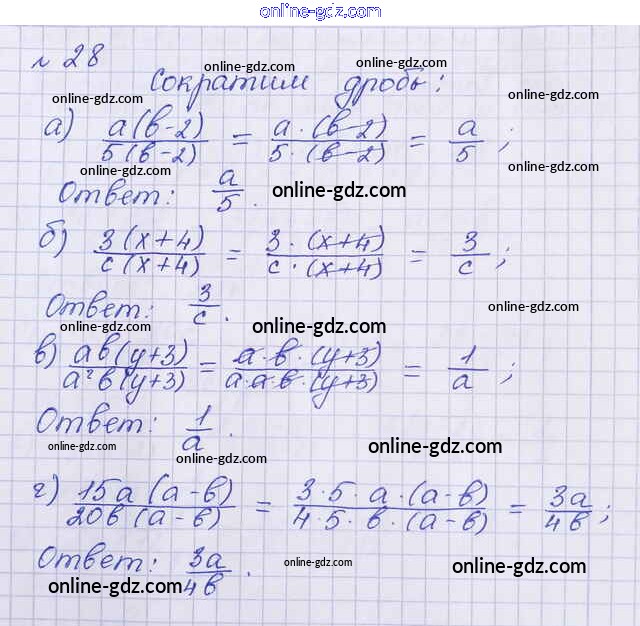 online-gdz.com
№ 28
online-gdz.com online-gdz.com
Сократим дробь:
online-gdz.com online-gdz.com
а) a(b-2)/5(b-2) = a·(b-2)/5·(b-2) = a/5 ;
online-gdz.com online-gdz.com
Ответ: a/5 . online-gdz.com
б) 3(x+4)/c(x+4) = 3·(x+4)/c·(x+4) = 3/c ;
Ответ: 3/c . online-gdz.com
online-gdz.com online-gdz.com
в) ab(y+3)/a²b(y+3) = a·b·(y+3)/a·a·b·(y+3) = 1/a ;
Ответ: 1/a .
online-gdz.com online-gdz.com online-gdz.com
г) 15a(a-b)/20b(a-b) = 3·5·a·(a-b)/4·5·b·(a-b) = 3a/4b ;
Ответ: 3a/4b . online-gdz.com online-gdz.com
online-gdz.com online-gdz.com